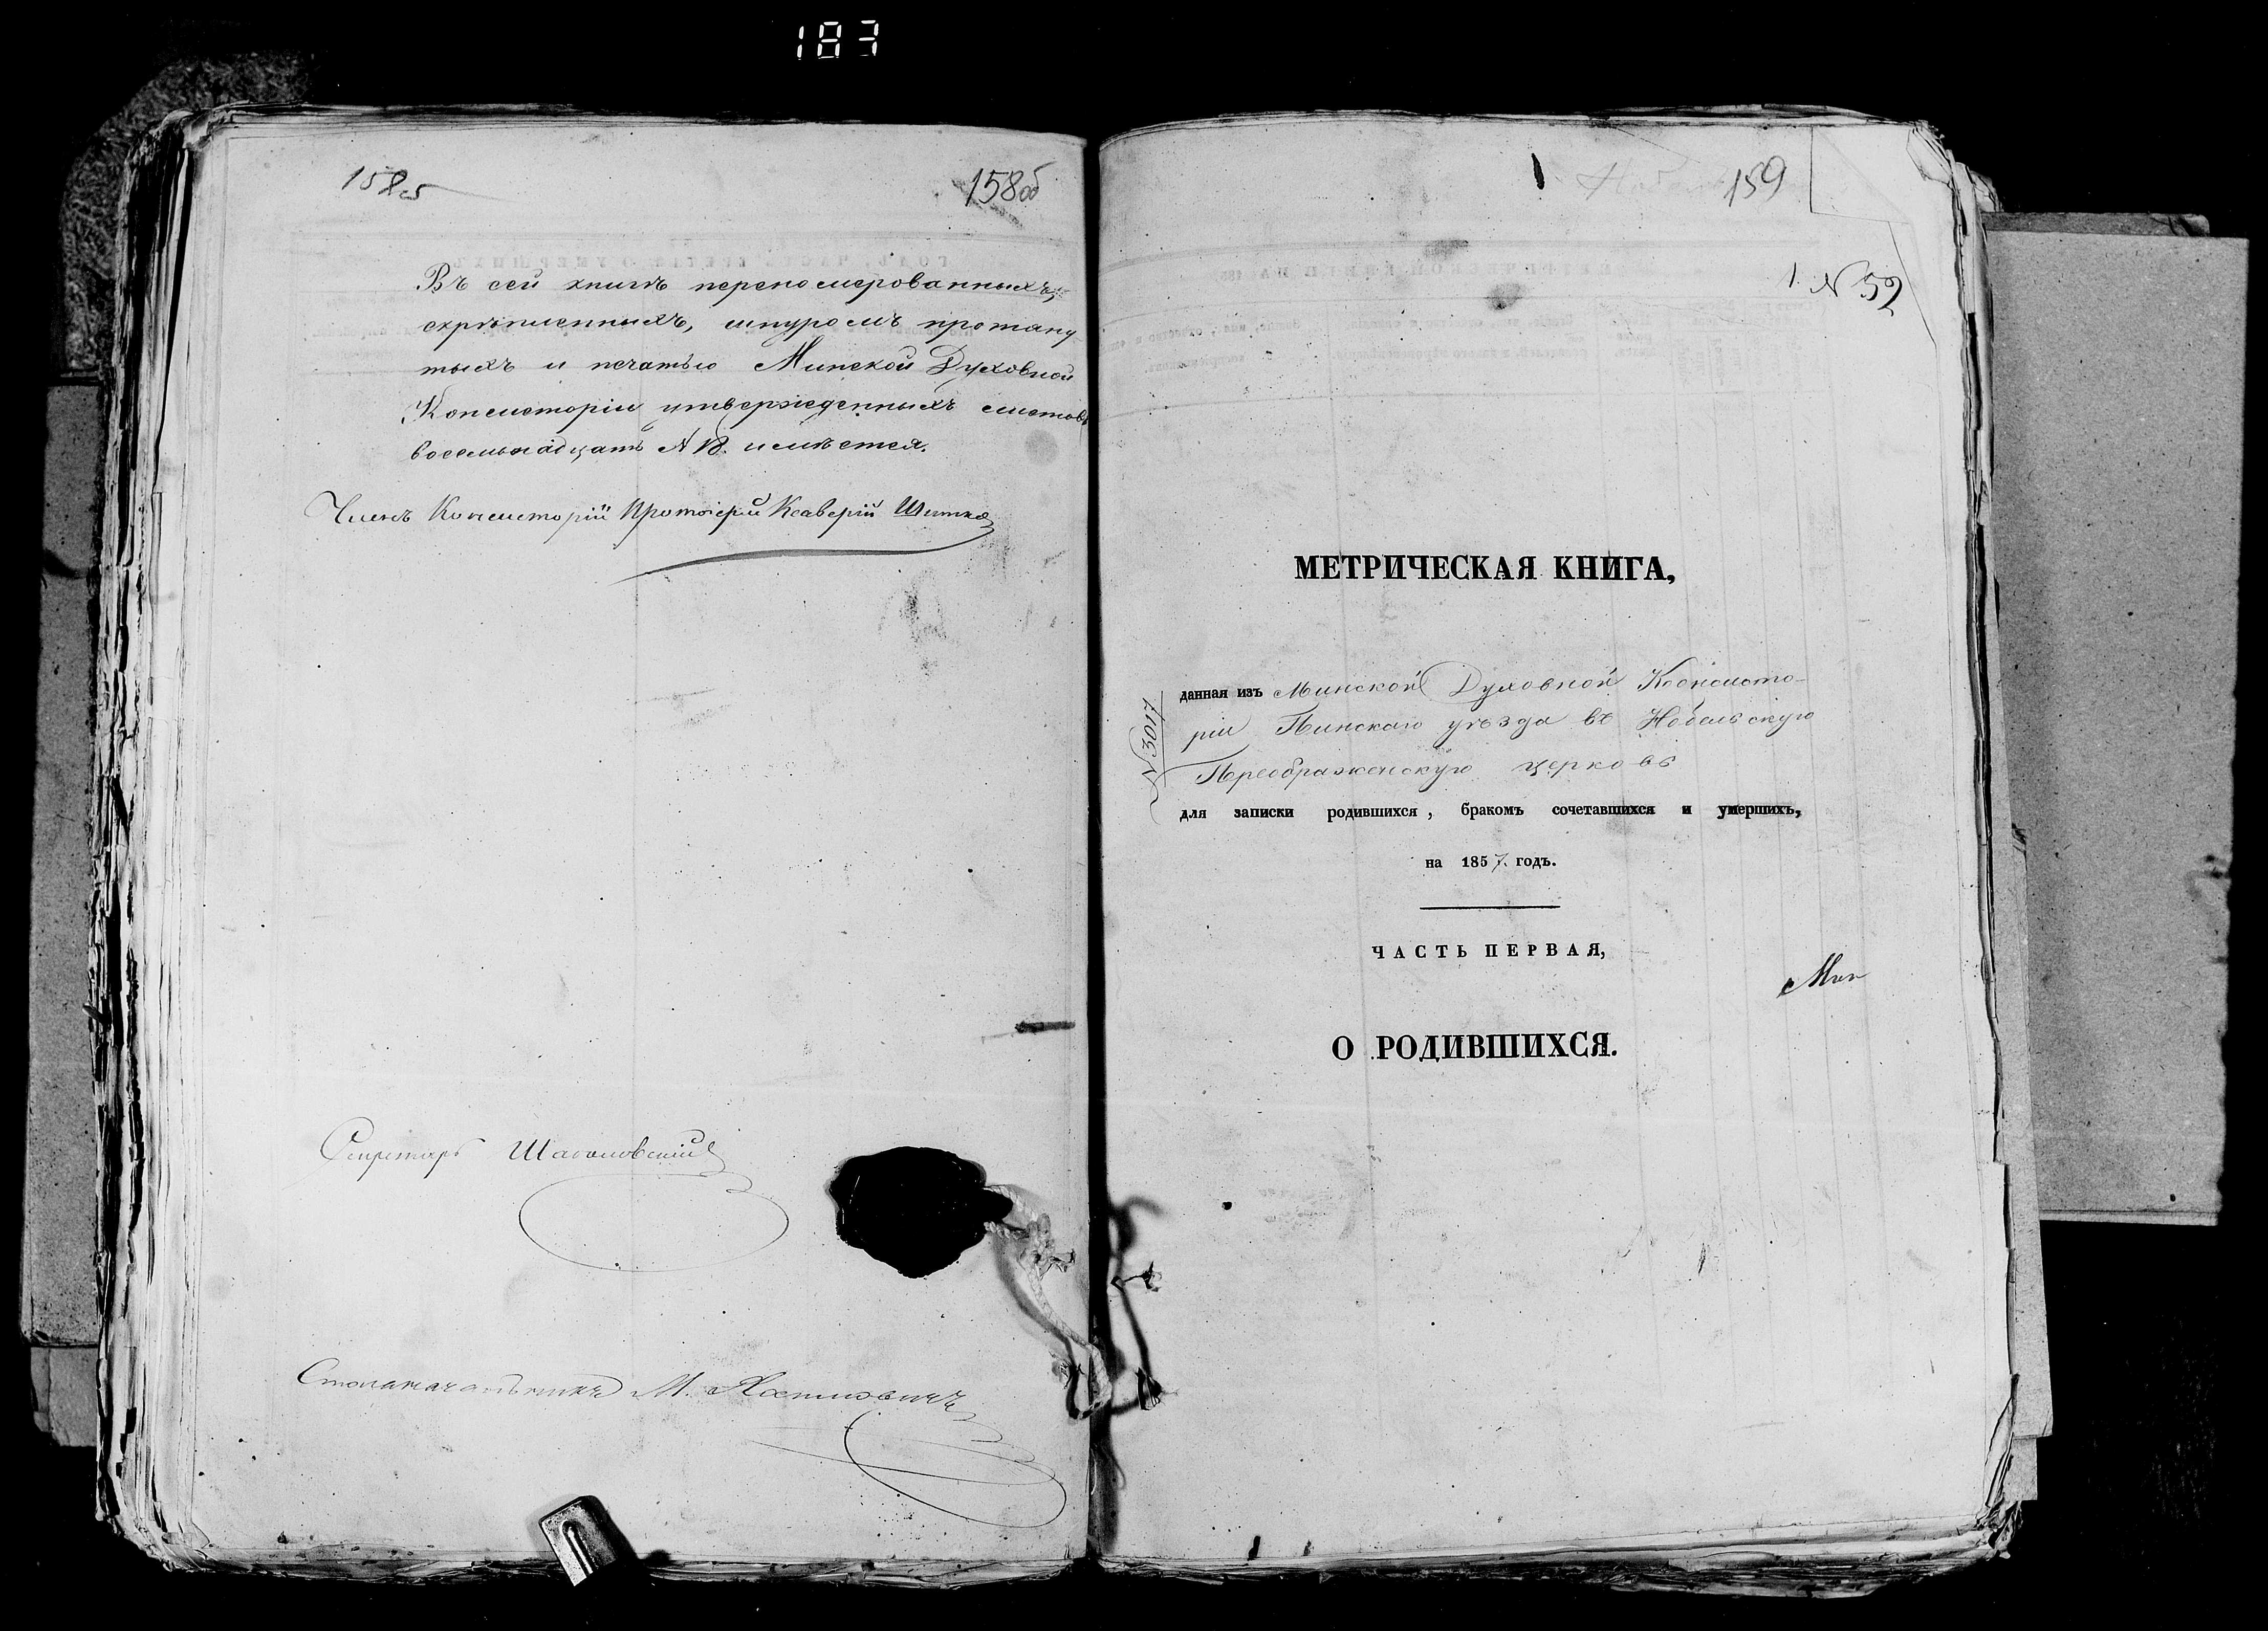 183
158об
Въ сей книгѣ перенумерованныхъ,
скрѣпленныхъ, шнуромъ протяну
тыхъ и печатью Минской Духовной
Консисторіи утвержденныхъ листовъ
восемьнадцать № 18. имѣется.
Членъ Консисторіи Протоіерей Ксаверій
Секретарь
Столоначальникъ М.
159
1. № 52
МЕТРИЧЕСКАЯ КНИГА,
данная изъ Минской Духовной Консисто-
ріи Пинскаго уѣзда въ Нобельскую
Преображенскую церковь
№ 3017
для записки родившихся, бракомъ сочетавшихся и умершихъ,
на 1857. годъ.
ЧАСТЬ ПЕРВАЯ,
Мин
О РОДИВШИХСЯ.